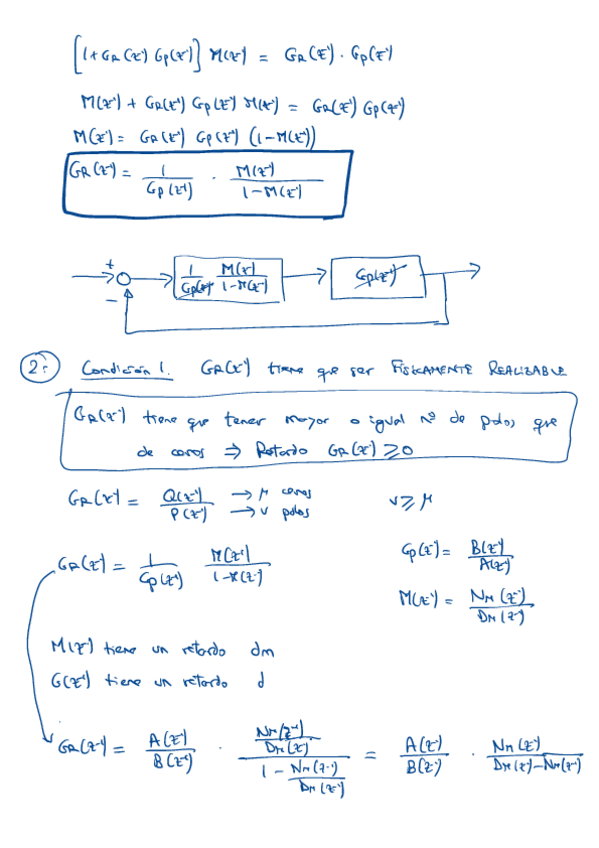 [1+GR(z⁻¹) Gp(z⁻¹)] M(z⁻¹) = GR(z⁻¹) · Gp(z⁻¹)
M(z⁻¹) + GR(z⁻¹) Gp(z⁻¹) M(z⁻¹) = GR(z⁻¹) Gp(z⁻¹)
M(z⁻¹) = GR(z⁻¹) Gp(z⁻¹) (1-M(z⁻¹))
GR(z⁻¹) = 1/Gp(z⁻¹) · M(z⁻¹)/(1-M(z⁻¹))
+ − 1/Gp(z⁻¹) M(z⁻¹)/(1-M(z⁻¹)) Gp(z⁻¹)
2º Condición 1. GR(z⁻¹) tiene que ser FÍSICAMENTE REALIZABLE
GR(z⁻¹) tiene que tener mayor o igual nº de polos que
de ceros ⇒ Retardo GR(z⁻¹) ≥ 0
GR(z⁻¹) = Q(z⁻¹)/P(z⁻¹) → μ ceros → ν polos ν ≥ μ
GR(z⁻¹) = 1/Gp(z⁻¹) M(z⁻¹)/(1-M(z⁻¹)) Gp(z⁻¹) = B(z⁻¹)/A(z⁻¹)
M(z⁻¹) = NM(z⁻¹)/DM(z⁻¹)
M(z⁻¹) tiene un retardo dm
G(z⁻¹) tiene un retardo d
GR(z⁻¹) = A(z⁻¹)/B(z⁻¹) · (NM(z⁻¹)/DM(z⁻¹))/(1 - NM(z⁻¹)/DM(z⁻¹)) = A(z⁻¹)/B(z⁻¹) · NM(z⁻¹)/(DM(z⁻¹)-NM(z⁻¹))